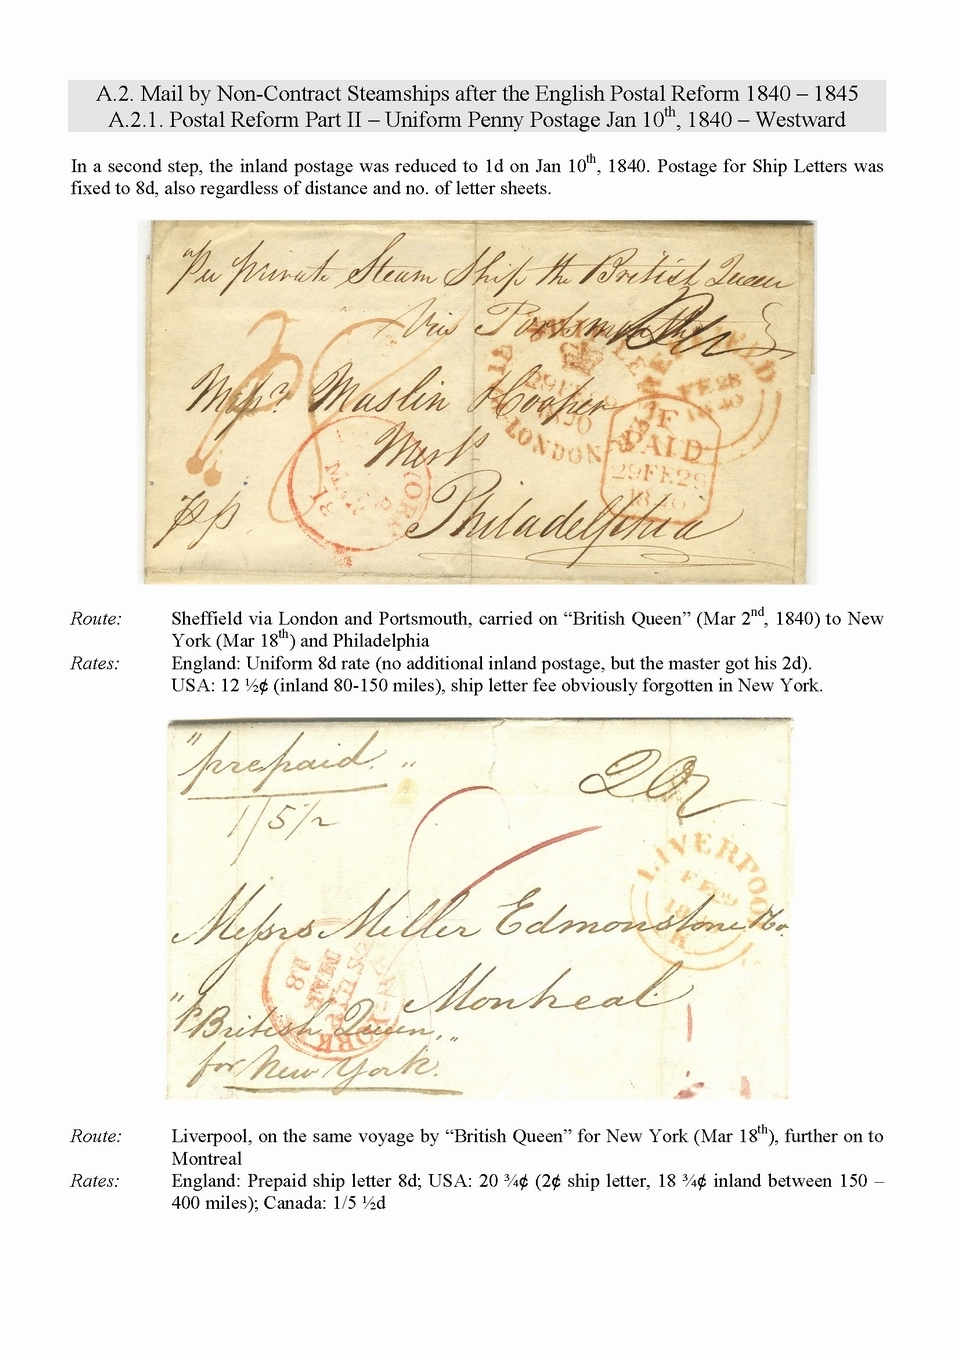 A.2. Mail by Non-Contract Steamships after the English Postal Reform 1840 – 1845
A.2.1. Postal Reform Part II – Uniform Penny Postage Jan 10th, 1840 – Westward
In a second step, the inland postage was reduced to 1d on Jan 10th, 1840. Postage for Ship Letters was
fixed to 8d, also regardless of distance and no. of letter sheets.
Per private Steam Ship the British Queen
Via Portsmouth
Messrs Maslin Hooper
Philadelphia
LONDON
SHEFFIELD
FE 28
1840
PAID
29FE29
1840
Route: Sheffield via London and Portsmouth, carried on “British Queen” (Mar 2nd, 1840) to New
York (Mar 18th) and Philadelphia
Rates: England: Uniform 8d rate (no additional inland postage, but the master got his 2d).
USA: 12 ½¢ (inland 80-150 miles), ship letter fee obviously forgotten in New York.
"prepaid"
1/5 1/2
LIVERPOOL
Messrs Miller Edmonstone & Co.
Montreal
NEW-YORK
SHIP
MAR
18
"p British Queen"
for New York.
Route: Liverpool, on the same voyage by “British Queen” for New York (Mar 18th), further on to
Montreal
Rates: England: Prepaid ship letter 8d; USA: 20 ¾¢ (2¢ ship letter, 18 ¾¢ inland between 150 –
400 miles); Canada: 1/5 ½d